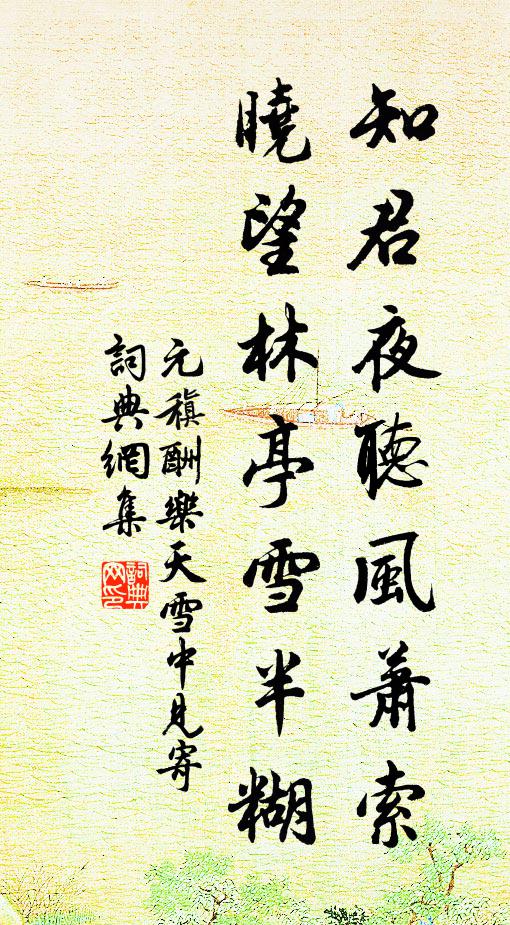 知君夜聽風蕭索
曉望林亭雪半糊
元稹酬樂天雪中見寄
詞典網集
詞典网印